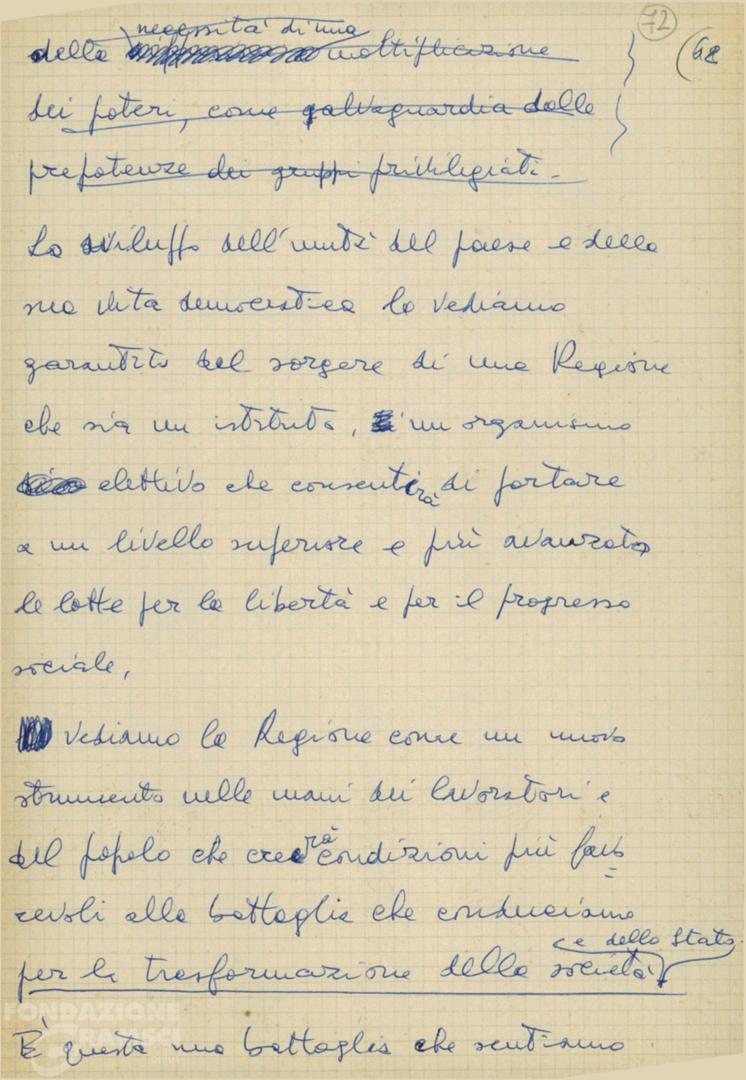 72
68
necessità di una
della moltiplicazione
dei poteri, come salvaguardia dalle
prepotenze dei gruppi privilegiati.
Lo sviluppo dell'unità del paese e della
sua vita democratica lo vediamo
garantito dal sorgere di una Regione
che sia un istituto, un organismo
elettivo che consentirà di portare
a un livello superiore e più avanzato
le lotte per la libertà e per il progresso
sociale,
Vediamo la Regione come un nuovo
strumento nelle mani dei lavoratori e
del popolo che creerà condizioni più favo=
revoli alla battaglia che conduciamo
e dello Stato.
per la trasformazione della società
È questa una battaglia che sentiamo
FONDAZIONE
GRAMSCI